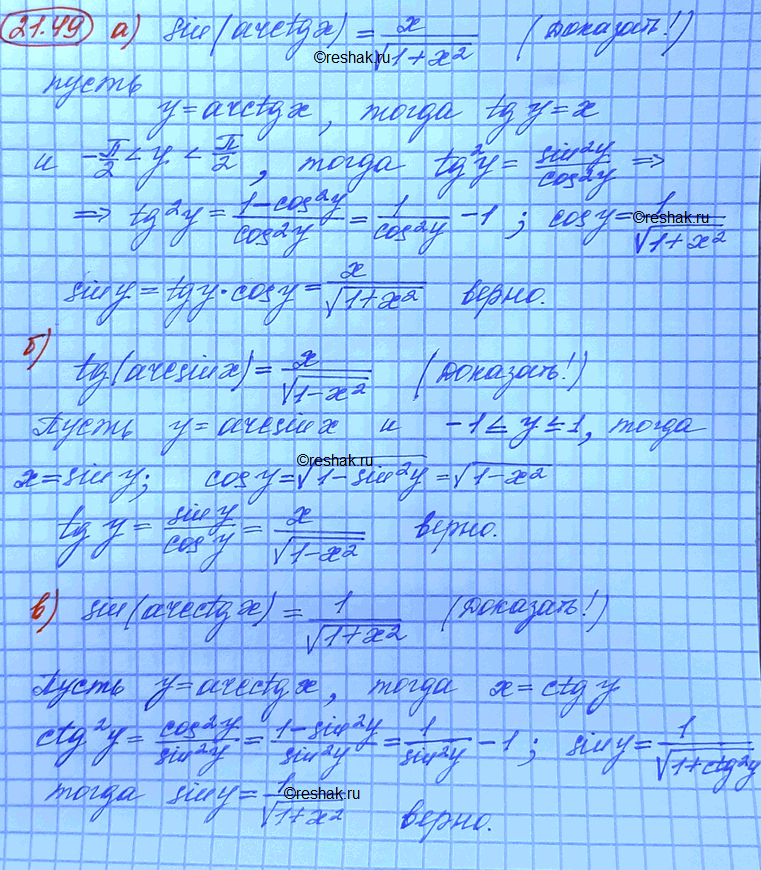 21.49 а) sin(arctgx) = x/√1+x² (Доказать!)
©reshak.ru
пусть
y = arctgx, тогда tgy = x
и -π/2 < y < π/2, тогда tg²y = sin²y/cos²y ⇒
⇒ tg²y = 1-cos²y/cos²y = 1/cos²y - 1; cosy = 1/√1+x²
©reshak.ru
siny = tgy·cosy = x/√1+x² верно.
б)
tg(arcsinx) = x/√1-x² (Доказать!)
Пусть y = arcsinx и -1 ≤ y ≤ 1, тогда
©reshak.ru
x = siny; cosy = √1-sin²y = √1-x²
tgy = siny/cosy = x/√1-x² верно.
в) sin(arcctgx) = 1/√1+x² (Доказать!)
Пусть y = arcctgx, тогда x = ctgy
ctg²y = cos²y/sin²y = 1-sin²y/sin²y = 1/sin²y - 1; siny = 1/√1+ctg²y
тогда siny = 1/√1+x² верно.
©reshak.ru